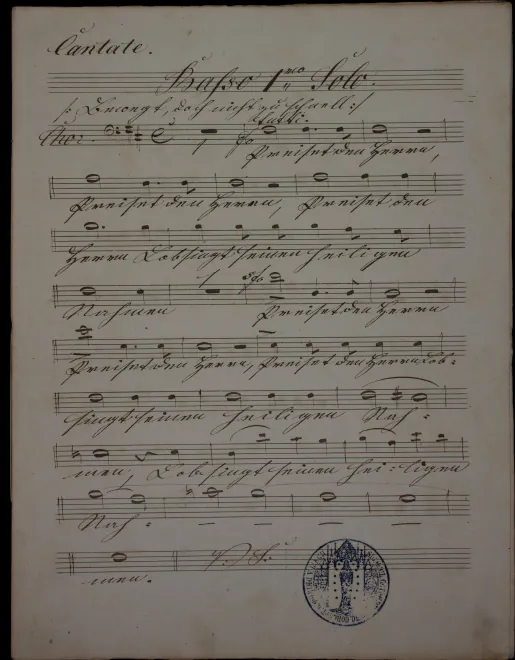 Cantate.
Basso 1mo Solo.
/: Bewegt, doch nicht zu schnell :/
Tutti.
Chor.
Preiset den Herrn,
Preiset den Herrn, Preiset den
Herrn Lobsingt seinen heiligen
Nahmen Preiset den Herrn
Preiset den Herrn, Preiset den Herrn Lob=
singt seinen heiligen Nah=
men, Lobsingt seinen hei=ligen
Nah=
men.